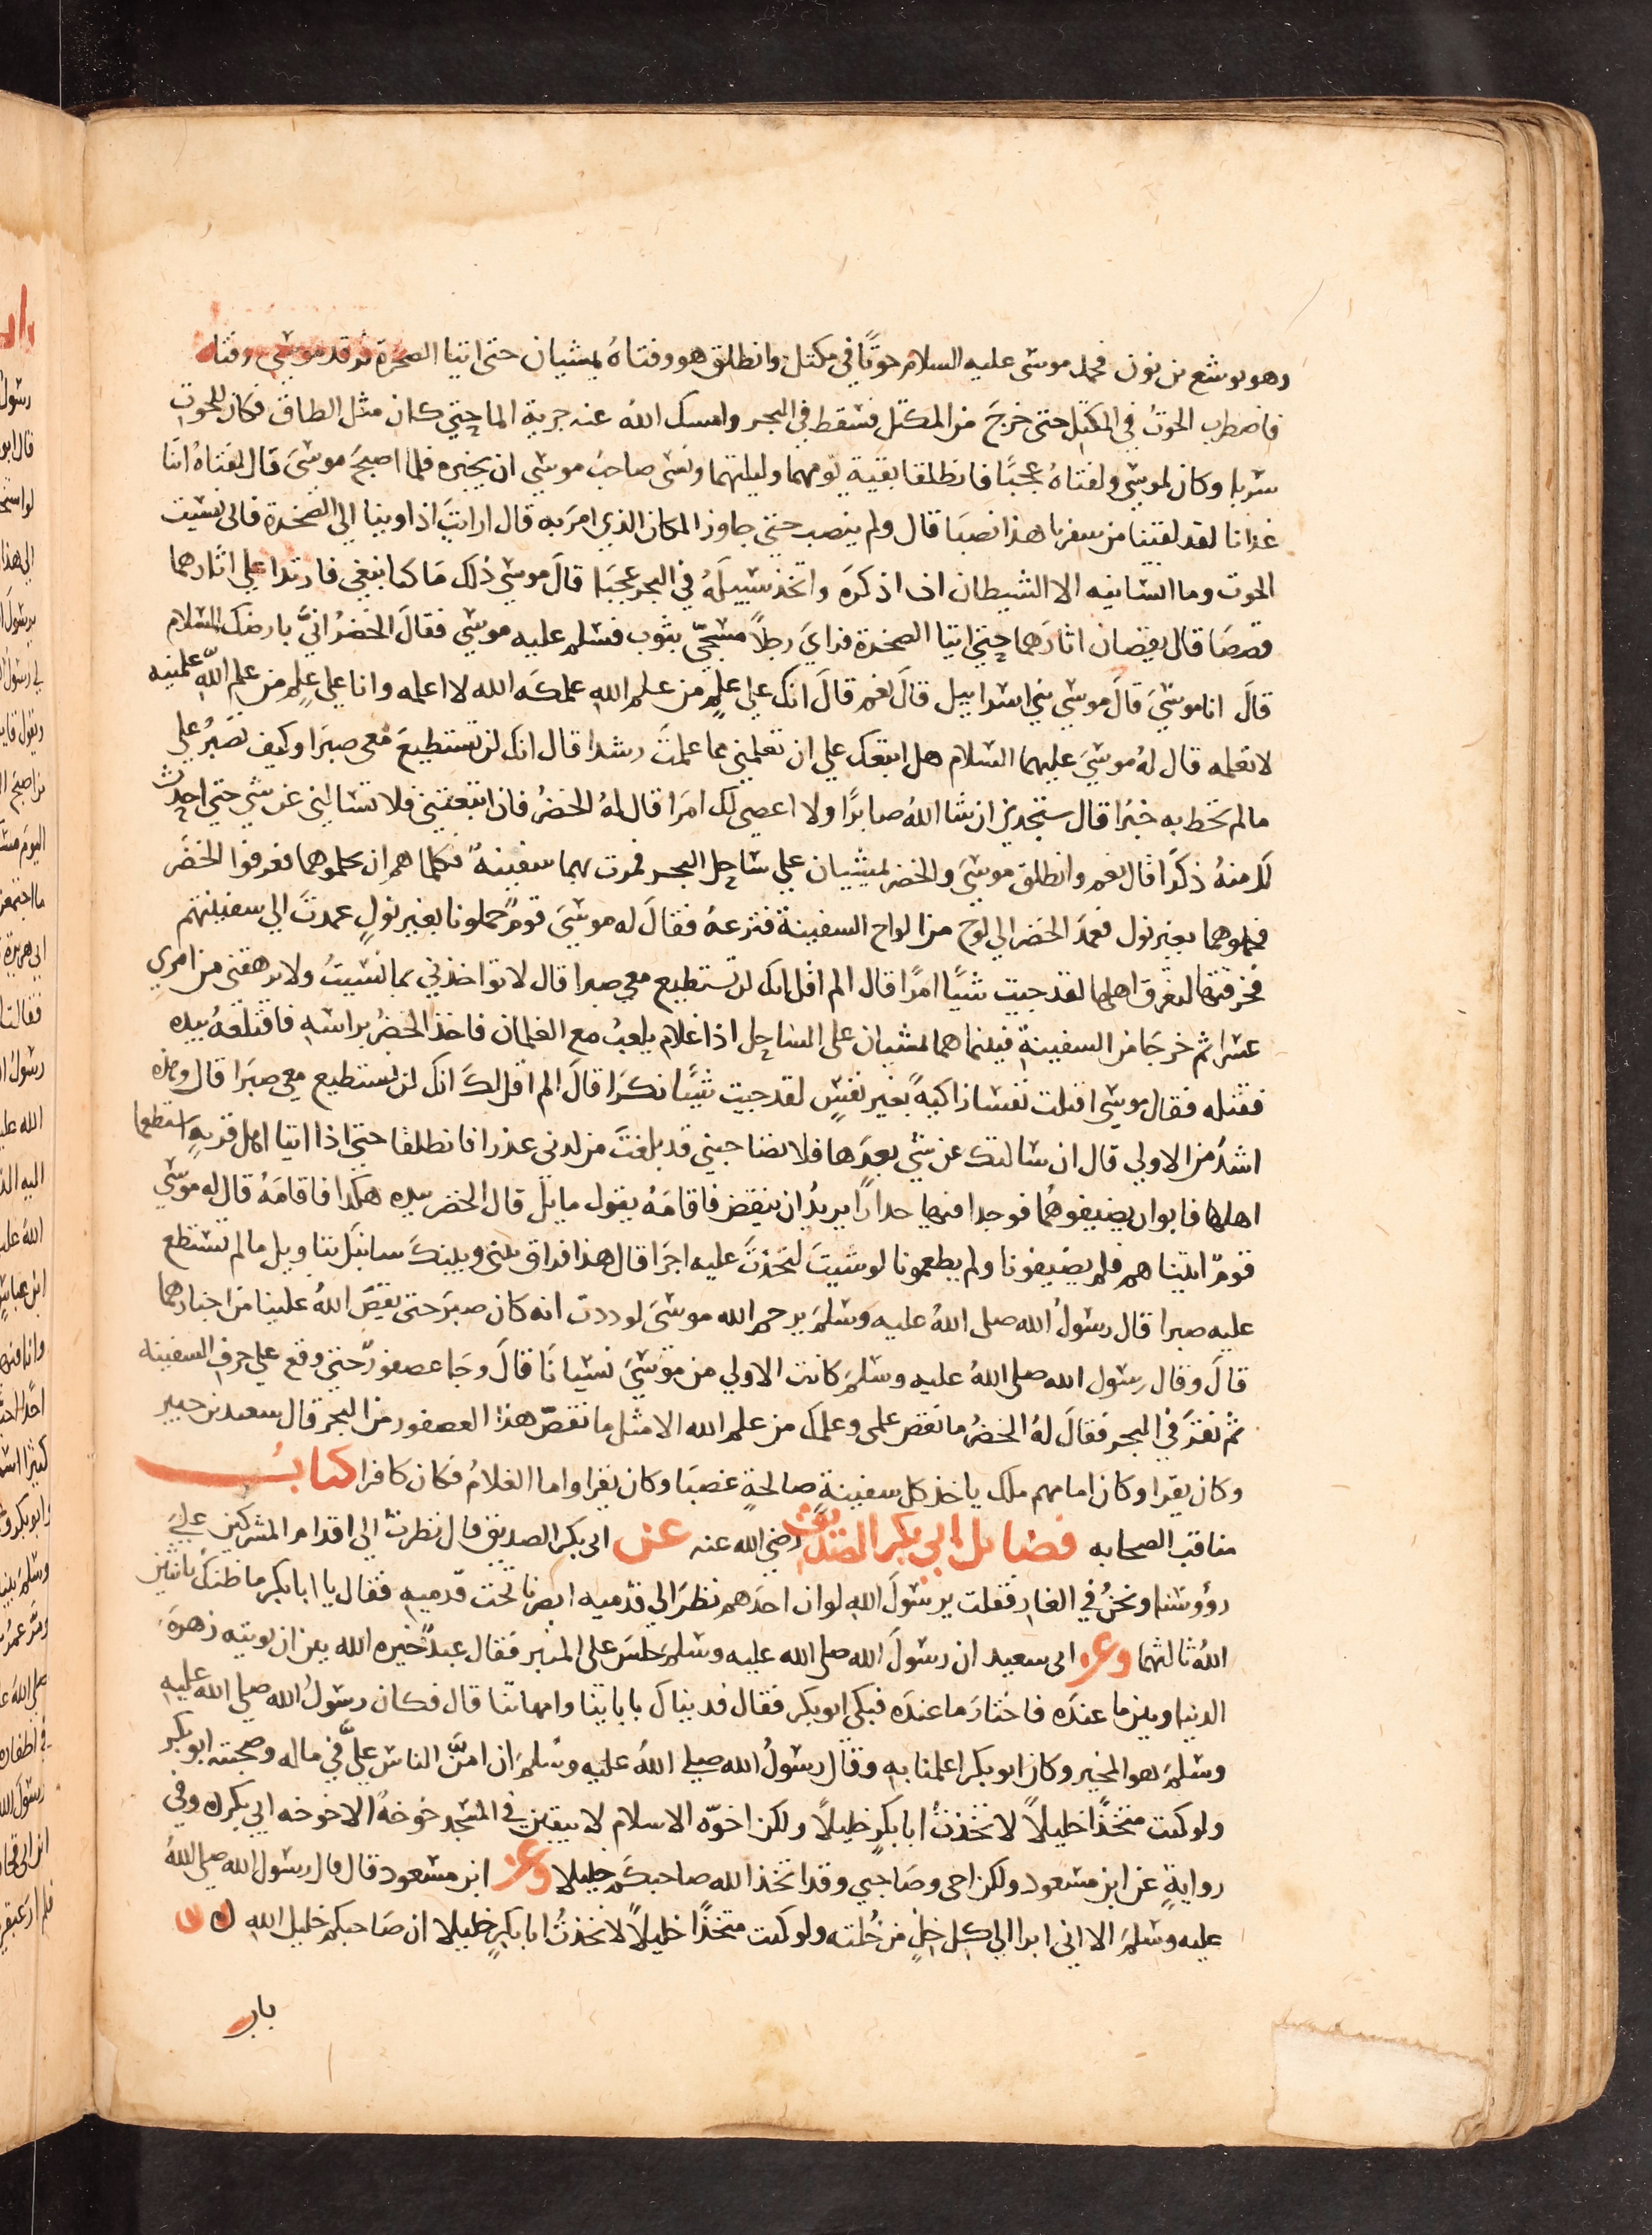 وهو يوشع بن نون فحمل موسى عليه السلام حوتًا في مكتل وانطلق هو وفتاهُ يمشيان حتى اتيا الصخرة فرقد موسى وفتاه
فاضطرب الحوتُ في المكتل حتى خرجَ من المكتل فسقط في البحر وامسك الله عنه جرية الما حتي كان مثل الطاق فكان للحوت
سربا وكان لموسى ولفتاهُ عجبًا فانطلقا بقية يومهما وليلتهما ونسى صاحبُ موسي ان يخبره فلما اصبحَ موسىَ قال لفتاهُ اتنا
غدانا لقد لقينا من سفرنا هذا نصبَا قال ولم ينصب حتي جاوز المكان الذي امرَ به قال ارايتَ اذ اوينا الي الصّخرة فاني نسيت
الحوت وما انسانيه الا الشيطان ان اذكرَه واتخذ سبيلَهُ في البحر عجبَا قالَ موسي ذلك مَا كنا نبغي فارتدا علي اثارهما
قصصَا قال يقصان اثارَهما حتي اتيا الصخرة فراي رجلاً مسجّي بثوب فسلم عليه موسي فقالَ الخضرُ انيَّ بارضك السلام
قالَ انا موسَيَ قالَ موسي بني اسراييل قالَ نعم قالَ انك علي علمٍ من علم اللهِ علمكَه الله لا اعلمه وانا علي علمٍ من علم اللّه علمنيه
لا تعلمه قال لهُ موسيَ عليهما السلام هل اتبعك علي ان تعلمني مما علمتَ رشدا قال انك لن تستطيعَ معي صبرَا وكيف تصبرُ علي
مالم تحط به خبرَا قال ستجدني ان شا اللهُ صابرًا ولا اعصي لك امرَا قال لهُ الخضرُ فان اتبعتني فلا تسالني عن شي حتي احدث
لك منهُ ذكرًا قال نعم وانطلق موسيَ والخضر يمشيان علي ساحل البحر فمرت بهما سفينةٌ فكلماهم ان يحملوهما فعرفوا الخضر
فحملوهما بغير نول فعمدَ الخضر الي لوح من الواح السفينة فنزعهُ فقالَ له موسيَ قومٌ حملونا بغير نولٍ عمدتَ الي سفينتهم
فخرقتها لتغرق اهلها لقد جيت شيًا امرًا قال الم اقل انك لن تستطيع معي صبرا قال لا تواخذني بما نسيتُ ولا ترهقنى من امري
عسرا ثم خرجَا من السفينةِ فبينما هما يمشيان على الساحل اذا غلام يلعبُ مع الغلمان فاخذ الخضرُ براسهِ فاقتلعهُ بيده
فقتله فقال موسي اقتلت نفسا زاكيةً بغير نفسٍ لقد جيت شيًا نكرَا قالَ الم اقل لكَ انك لن تستطيع معي صبرَا قال وهذه
اشدُ من الاولي قال ان سالتك عن شي بعدَها فلا تصاحبني قد بلغتَ من لدنى عذرا فانطلقا حتي اذا اتيا اهل قريةٍ استطعما
اهلها فابوا ان يضيفوهُما فوجدا فيها جدارًا يريدُ ان ينقض فاقامَهُ يقول مايل قال الخضر بيده هكذا فاقامَهُ قال له موسي
قومّ اتيناهم فلم يضيفونا ولم يطعمونا لو شيتَ لتخذتَ عليه اجرَا قال هذا فراق بيني وبينكَ سانبيك بتاويل مالم تستطع
عليه صبرا قال رسولُ الله صلى اللهُ عليه وسلمَ يرحم الله موسىَ لوددت انه كان صبرَ حتى يقصّ اللهُ علينا من اخبارهما
قالَ وقال رسول الله صلى اللهُ عليه وسلمَ كانت الاولي من موسَيَ نسيانَا قالَ وجَا عصفورٌ حتي وقع علي حرف السفينه
ثم نقرَ في البحر فقالَ لهُ الخضرُ ما نقص علمي وعلمك من علم الله الا مثل ما نقصّ هذا العصفور من البحر قال سعيد بن جبير
وكان يقرا وكان امامهم ملك ياخذ كل سفينةٍ صالحةٍ غصبَا وكان يقرا واما الغلامُ فكان كافرا كتابُ
مناقب الصحابه فضايل ابي بكر الصديق رضي الله عنه عن ابى بكر الصديق قال نظرت الي اقدام المشركين علي
رؤوسنا ونحنُ في الغار فقلت يرسولَ اللهِ لو ان احدَهم نظرَ الي قدميه ابصرنا تحت قدميهِ فقال يا ابا بكر ما ظنك باثنين
اللهُ ثالثهما وعن ابى سعيد ان رسولَ الله صلى الله عليه وسلمَ جلسَ على المنبر فقال عبدٌ خيره الله بين ان يوتيه زهرَة
الدنيا وبين ما عندَه فاختارَ ما عندَه فبكى ابو بكر فقال فديناك بابائنا وامهاتنا قال فكان رسولُ الله صلي الله عليه
وسلمَ هو المخير وكان ابو بكر اعلمنا بهِ وقال رسولُ الله صلي اللهُ عليه وسلمَ ان امنَّ الناس عليَّ في ماله وصحبته ابو بكر
ولو كنت متخذًا خليلاً لاتخذتُ ابا بكرٍ خليلاً ولكن اخوّه الاسلام لا يبقين في المسجد خوخةٌ الا خوخه ابي بكر ن وفي
روايةٍ عن ابن مسعود ولكن اخى وصَاحبي وقد اتخذ الله صاحبكم خليلا وعن ابن مسعود قال قال رسول الله صلى اللهُ
عليه وسلمَ الا اني ابرا الي كل خلٍ من خُلته ولو كنت متخذًا خليلاً لاتخذتُ ابا بكرٍ خليلا ان صَاحبكم خليل اللهِ ن
باب